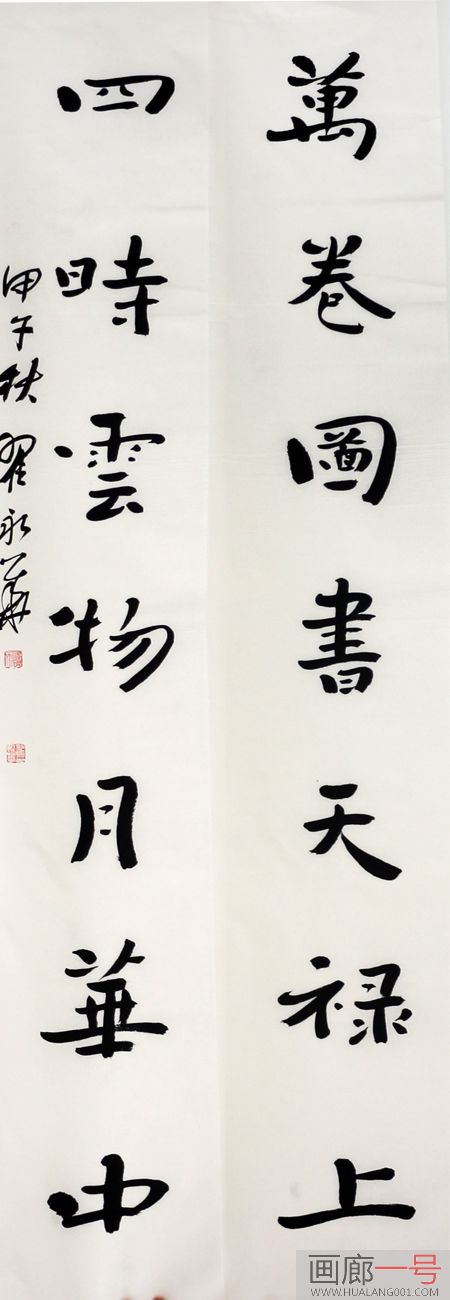 萬卷圖書天禄上
四時雲物月華中
甲午秋翟永華
画廊一号
WWW.HUALANG001.COM